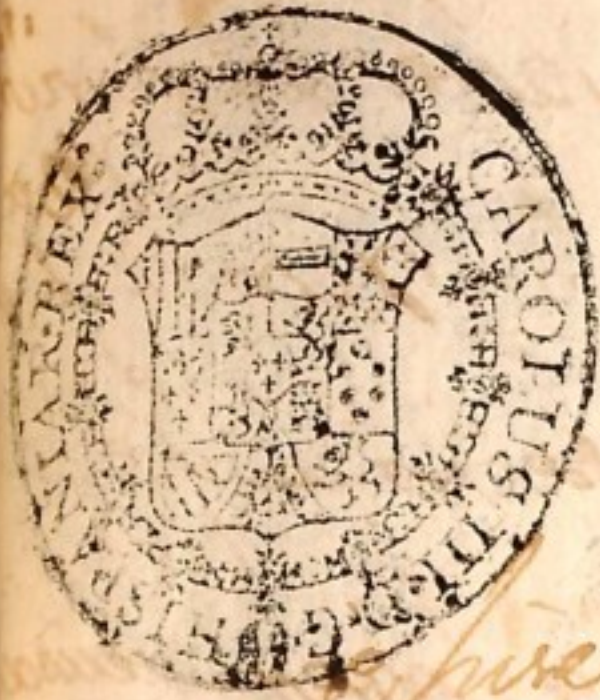 CAROLUS III D G HISPANIAR·REX